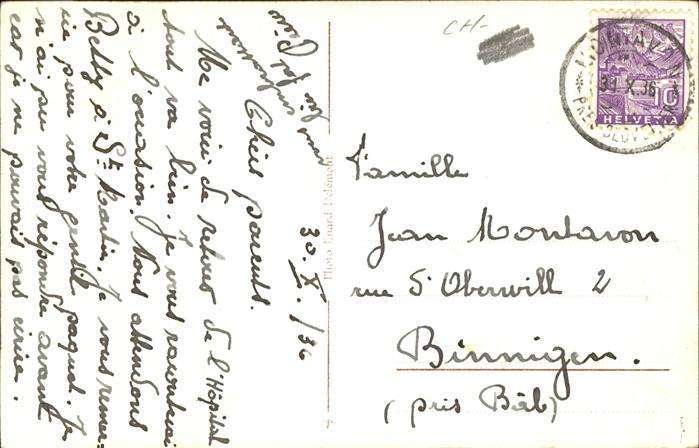 30. X. /36
Chers parents.
Me voici de retour de l'Hôpital
tout va bien. Je vous raconterai
à l'occasion. Nous attendons
Betty à St Martin. Je vous remer-
cie pour votre gentil paquet. Je
n'ai pu vous répondre avant
car je ne pouvais pas écrire.
Photo Enard Delémont
CH-
31.X.36
10
HELVETIA
Famille
Jean Montavon
rue d'Oberwill 2
Binnigen.
(près Bâle)